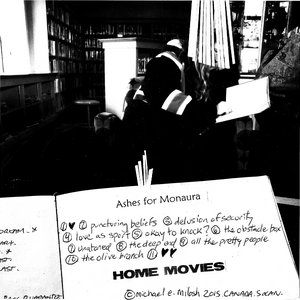 Ashes for Monaura
① ♥ ② puncturing beliefs ③ delusion of security
④ love as sport ⑤ okay to knock? ⑥ the obstacle box
⑦ unatoned ⑧ the deep end ⑨ all the pretty people
⑩ the olive branch ⑪ ♥♥
HOME MOVIES
© michael e. milosh 2015. CANADA. S.KAN.